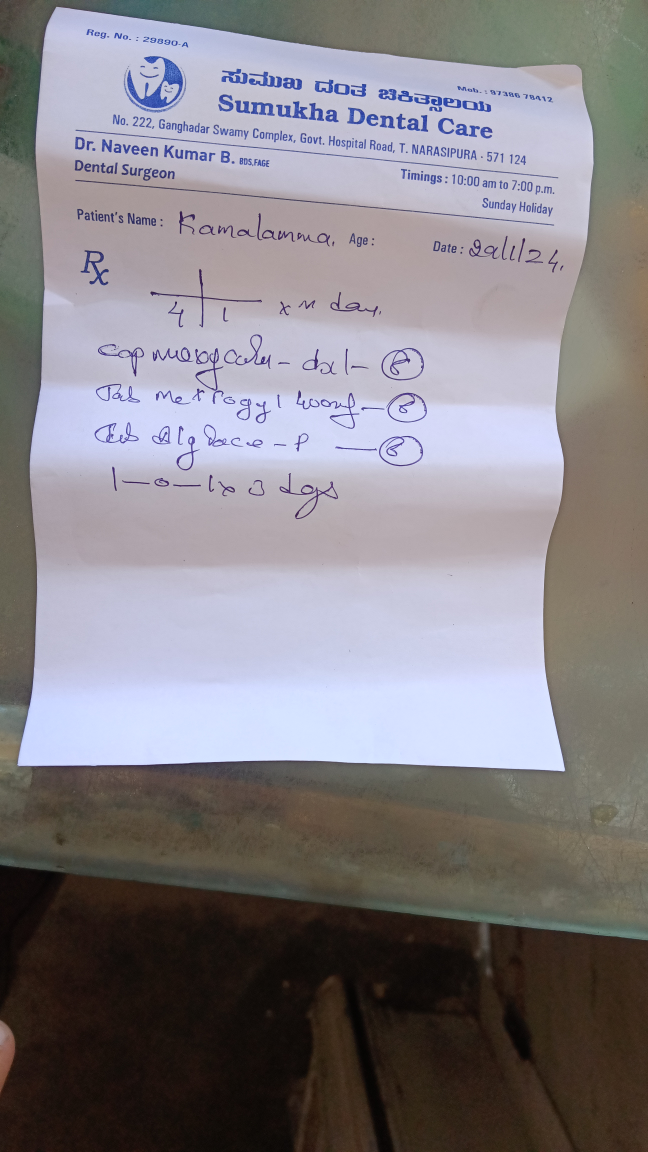 Reg. No. : 29890-A
Mob. : 97386 78412
ಸುಮುಖ ದಂತ ಚಿಕಿತ್ಸಾಲಯ
Sumukha Dental Care
No. 222, Ganghadar Swamy Complex, Govt. Hospital Road, T. NARASIPURA - 571 124
Dr. Naveen Kumar B. BDS.FAGE
Dental Surgeon
Timings : 10:00 am to 7:00 p.m.
Sunday Holiday
Patient's Name : Kamalamma. Age : Date :
Rx
4 1 x day.
Cap
Tab Metrogyl 400mg - 6
- P - 6
1-0-1 x 3 dys